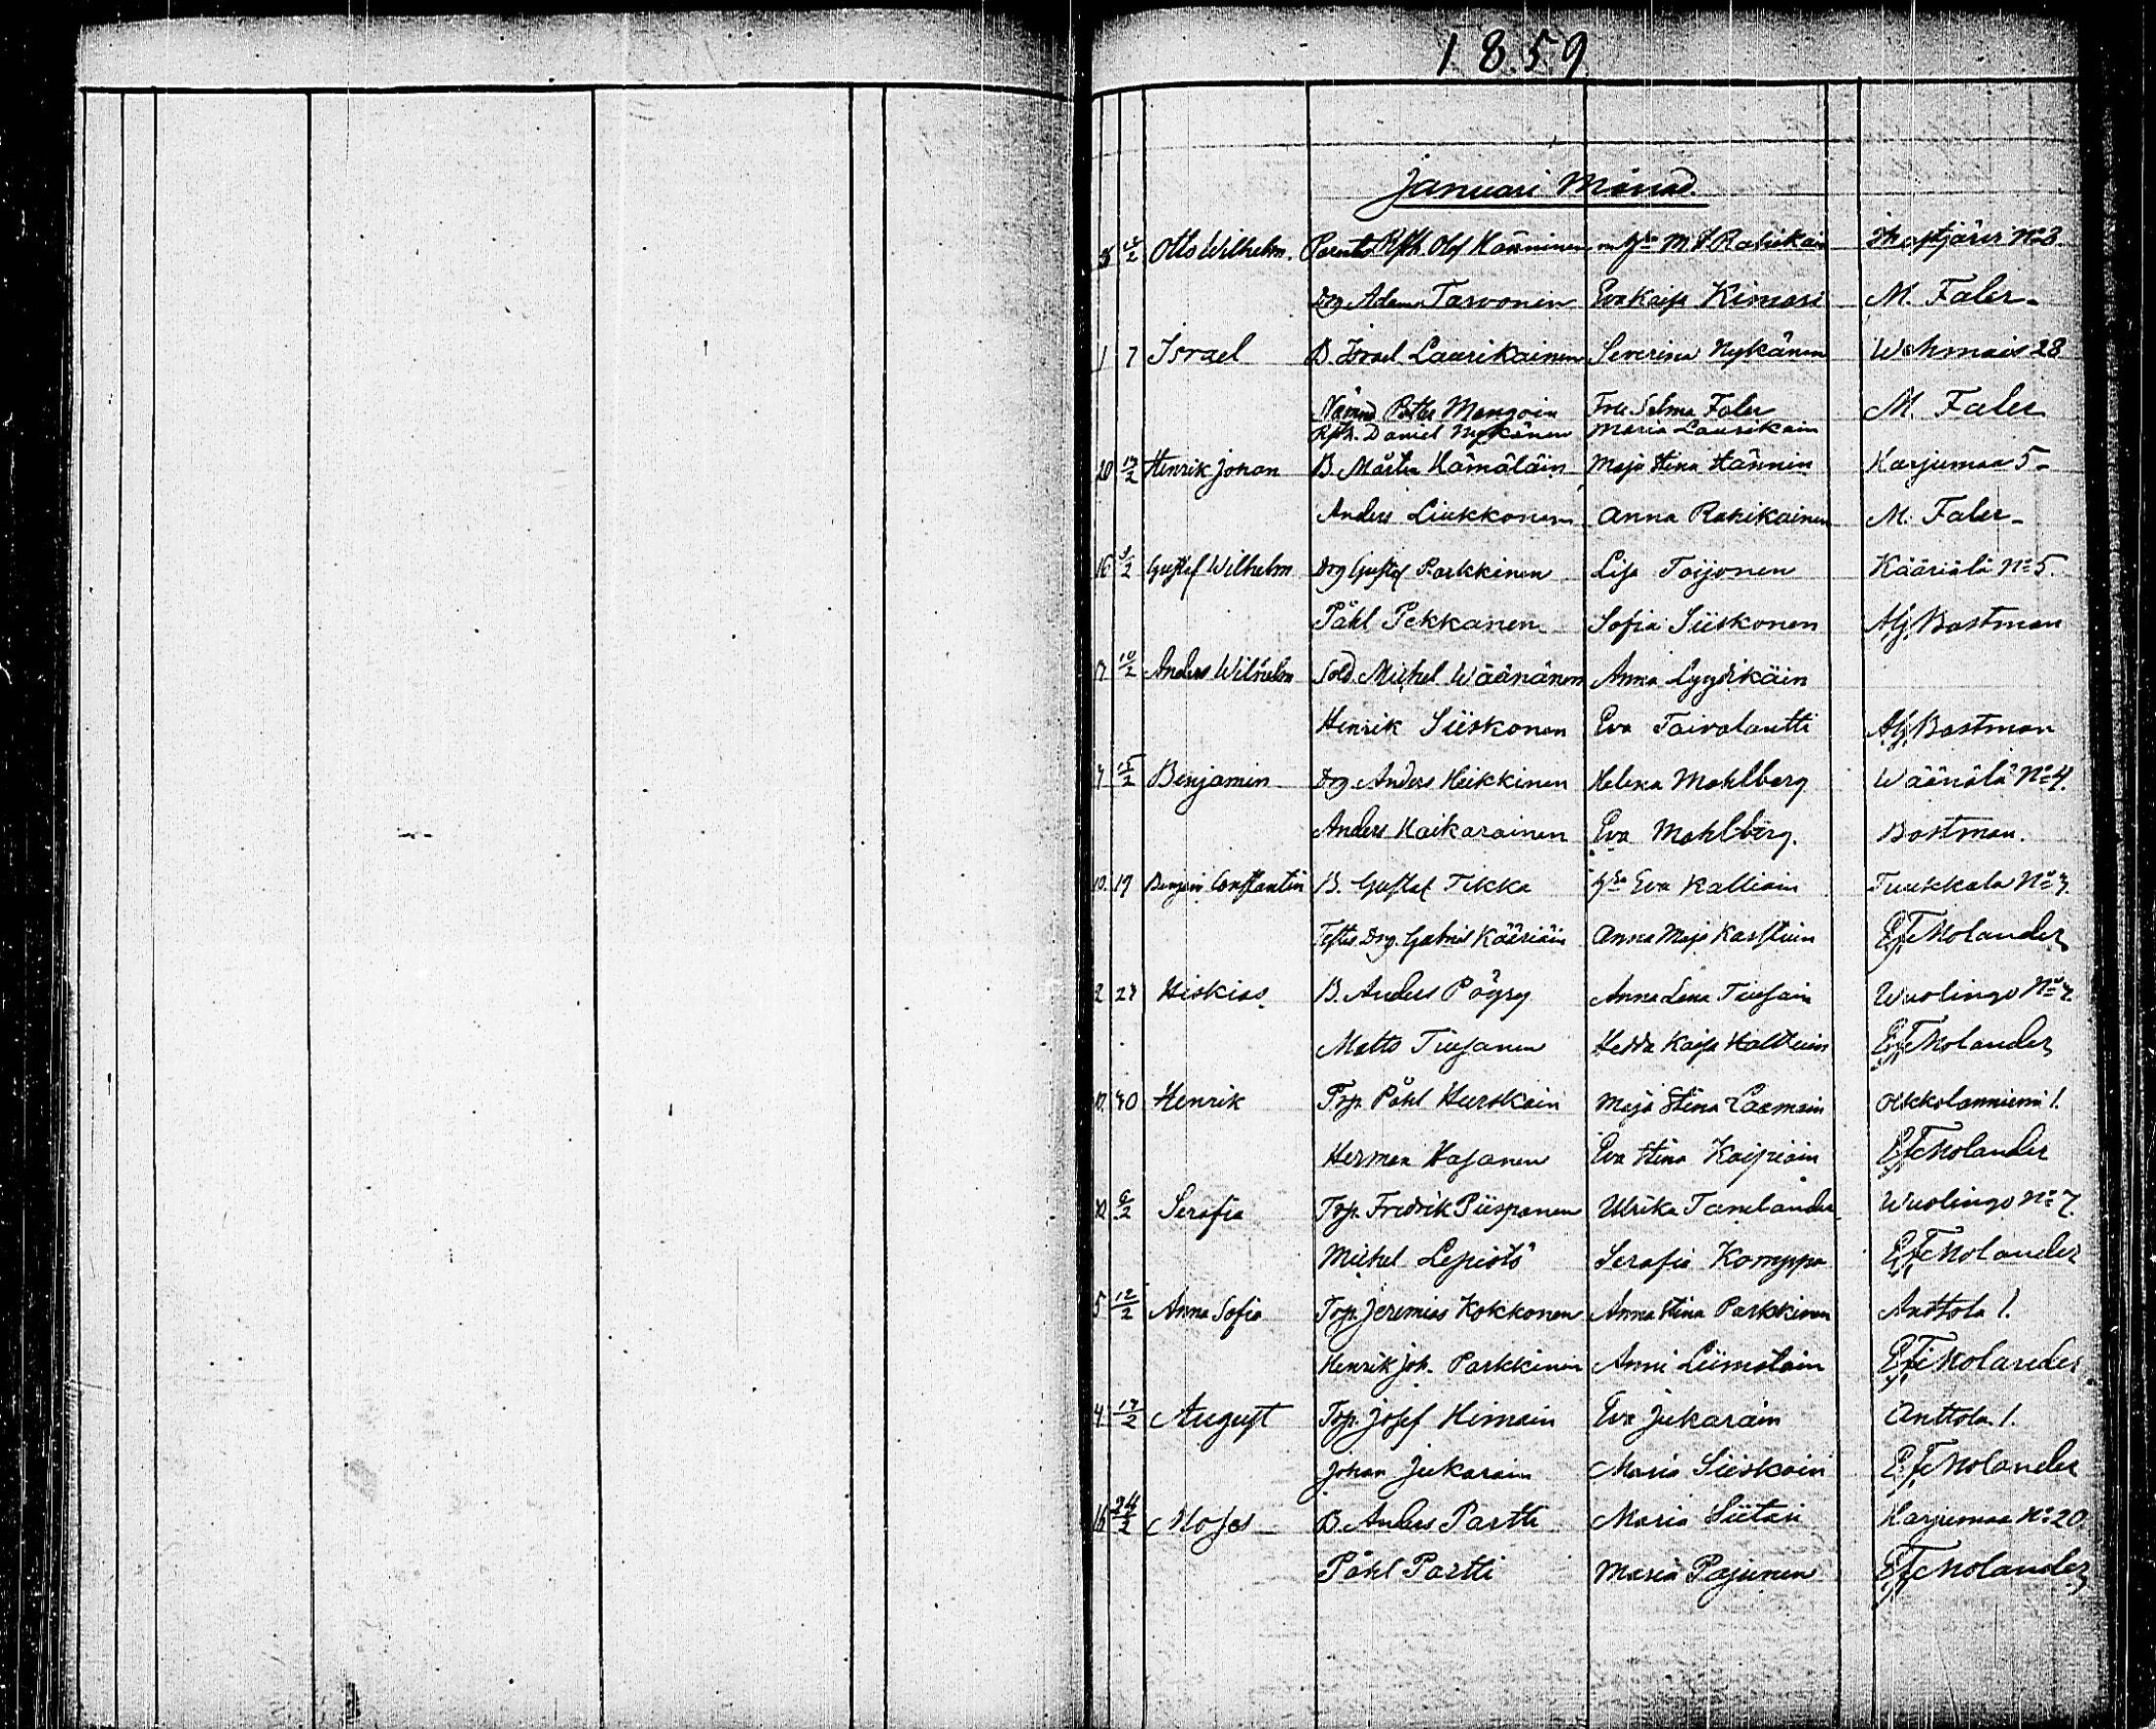 1859
Januari Månad.
5 Otto Wilhelm. Rfth. Olof Hänninen M. S. Rahikain No 3.
Drg Adam Tarvonen Eva Kaisa Kimari M. Faler
1 7 Israel B. Israel Laurikainen Severina Nykänen Wehmais 28
Nämnd. Petter Mangoin Selma Faler M. Faler
Rfth. Daniel Nykänen Maria Laurikain
20 Henrik Johan B. Mårten Hämäläin Maja Stina Hännin Karjumaa 5
Anders Liukkonen Anna Rahikainen M. Faler
16 Gustaf Wilhelm Drg Gustaf Parkkinen Lisa Toijonen Kääriälä No 5.
Påhl Pekkanen Sofia Siiskonen Alf. Bostman
10/2 Anders Wilhelm Sold. Michel Wäänänen Anna Lyydikäin
Henrik Siiskonen Eva Taivalantti Alf. Bostman
15/2 Benjamin Drg Anders Heikkinen Helena Mahlberg Wäänälä No 4.
Anders Haikarainen Eva Mahlberg. Bostman.
10. 19 Benjam Constantin B. Gustaf Tikka Eva Kalliain Tuukkala No 7.
Drg. Gabriel Kääriäin Anna Maja Karstuin Molander
2 Hiskias B. Anders Pöyry Anna Lena Tiusain Wuolingo No 7
Matts Tiusanen Hedda Kaisa Molander
Henrik Torp. Påhl Hurskain Maja Stina Laamain Olkkolanniemi 1.
Herman Hasanen Eva Stina Kaipiain Molander
6/2 Serafia Torp. Fredrik Piispanen Ulrika Tamelander Wuolingo No 7
Michel Lepistö Serafia Komppa Molander
5 12/2 Anna Sofia Torp. Jeremias Kokkonen Anna Stina Parkkinen Anttola 1.
Henrik Joh. Parkkinen Anni Liimatain Molander
4 17/2 August Torp. Josef Himain Eva Jukarain Anttola 1.
Johan Jukarain Maria Siiskoin Molander
16 24/2 Moses B. Anders Partti Maria Siitari Karjumaa No 20
Påhl Partti Maria Pajunen Molander